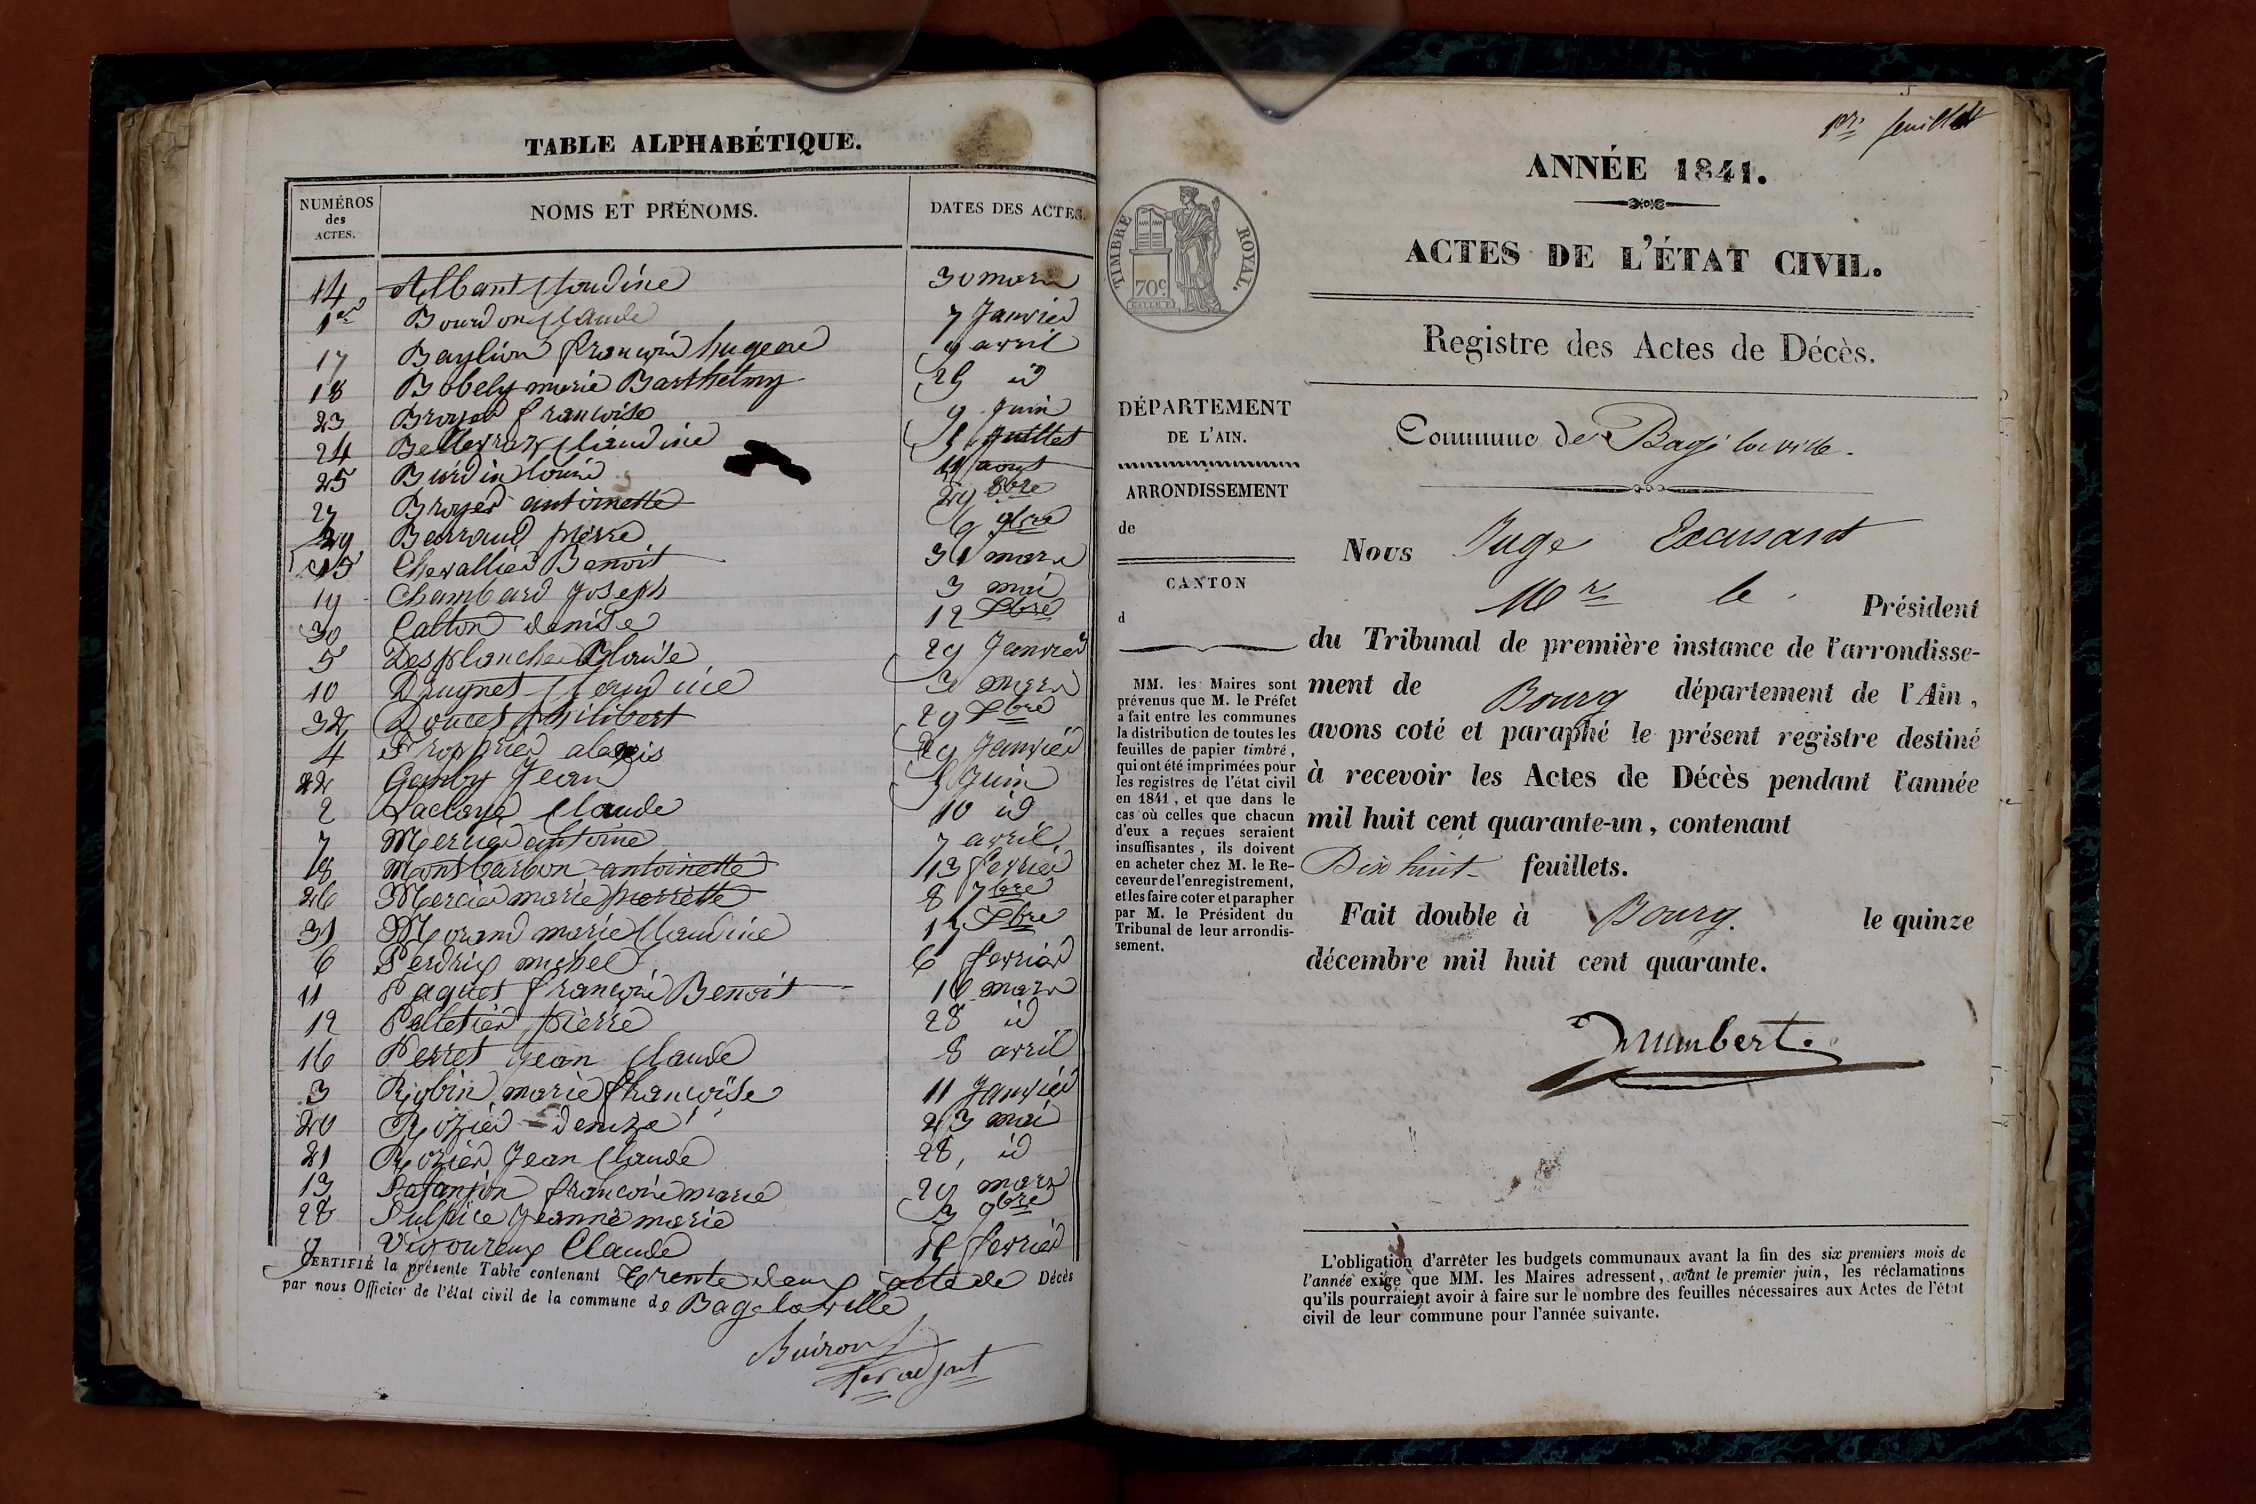 TABLE ALPHABÉTIQUE.
NUMÉROS des ACTES. NOMS ET PRÉNOMS. DATES DES ACTES.
14 Albant Claudine 30 mars
1er Bourdon Claude 7 Janvier
17 françois 9 avril
18 marie Barthelmy 25 id
23 Broyer françoise 9 Juin
24 Claudine 5 Juillet
25 Burdin louis 11 aout
27 Broyer antoinette 29 8bre
29 Berraud pierre 6 9bre
15 Chevallier Benoit 31 mars
19 Chambard Joseph 3 mai
30 Catton denise 12 Xbre
5 Desplanche Blaise 29 Janvier
10 Claudine 3 mars
32 Doucet philibert 29 Xbre
4 alexis 29 Janvier
22 Jean 5 Juin
2 Claude 10 id
7 Mercier antoine 7 avril
8 Montbarbon antoinette 13 fevrier
26 Mercier marie pierrette 8 7bre
31 Morand marie Claudine 15 Xbre
6 Perdrix michel 6 fevrier
11 Paquet françois Benoit 16 mars
12 Pelletier pierre 28 id
16 Perret Jean Claude 8 avril
3 Robin marie françoise 11 Janvier
20 Rozier denize 23 mai
21 Rozier Jean Claude 28, id
13 françoise marie 29 mars
28 Sulpice Jeanne marie 3 9bre
9 Vigoureux Claude fevrier
CERTIFIÉ la présente Table contenant trente deux acte de Décès
par nous Officier de l'état civil de la commune de Bagé la ville
Buiron
1er adjoint
1er feuillet
ANNÉE 1841.
ACTES DE L'ÉTAT CIVIL.
TIMBRE ROYAL.
70c.
Registre des Actes de Décès.
Commune de Bagé la ville.
DÉPARTEMENT
DE L'AIN.
ARRONDISSEMENT
de
CANTON
d
MM. les Maires sont
prévenus que M. le Préfet
a fait entre les communes
la distribution de toutes les
feuilles de papier timbré,
qui ont été imprimées pour
les registres de l'état civil
en 1841, et que dans le
cas où celles que chacun
d'eux a reçues seraient
insuffisantes, ils doivent
en acheter chez M. le Re-
ceveur de l'enregistrement,
et les faire coter et parapher
par M. le Président du
Tribunal de leur arrondis-
sement.
Nous Juge Excusant
Mr le Président
du Tribunal de première instance de l'arrondisse-
ment de Bourg département de l'Ain,
avons coté et paraphé le présent registre destiné
à recevoir les Actes de Décès pendant l'année
mil huit cent quarante-un, contenant
Dix huit feuillets.
Fait double à Bourg. le quinze
décembre mil huit cent quarante.
L'obligation d'arrêter les budgets communaux avant la fin des six premiers mois de
l'année exige que MM. les Maires adressent, avant le premier juin, les réclamations
qu'ils pourraient avoir à faire sur le nombre des feuilles nécessaires aux Actes de l'état
civil de leur commune pour l'année suivante.